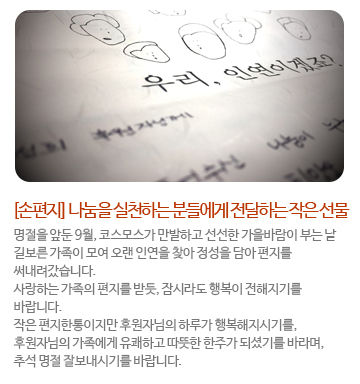 우리, 인연이겠죠?
후원자님께
[손편지] 나눔을 실천하는 분들에게 전달하는 작은 선물
명절을 앞둔 9월, 코스모스가 만발하고 선선한 가을바람이 부는 날
길보른 가족이 모여 오랜 인연을 찾아 정성을 담아 편지를
써내려갔습니다.
사랑하는 가족의 편지를 받듯, 잠시라도 행복이 전해지기를
바랍니다.
작은 편지한통이지만 후원자님의 하루가 행복해지시기를,
후원자님의 가족에게 유쾌하고 따뜻한 한주가 되셨기를 바라며,
추석 명절 잘보내시기를 바랍니다.